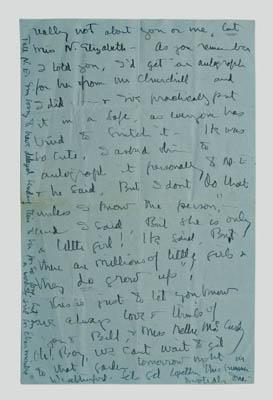 really not about you or me, but
Miss N. Elizabeth - As you remember
I told you, I'd get an autograph
for her from Mr Churchill - and
I did - & I've practically put
it in a safe, as everyone has
tried to snitch it - He was
so cute, I asked him to
autograph it personally to N.E.
& he said, But I don't do that
unless I know the person, -
and I said But she is only
a little girl! He said, But
there are millions of little girls &
they do grow up!
This is just to let you know
I always love & think of
you & Bill & Miss Nellie
Oh! Boy, we can't wait to get
to that garden tomorrow night in
Tell N.E. I'm sorry to have delayed